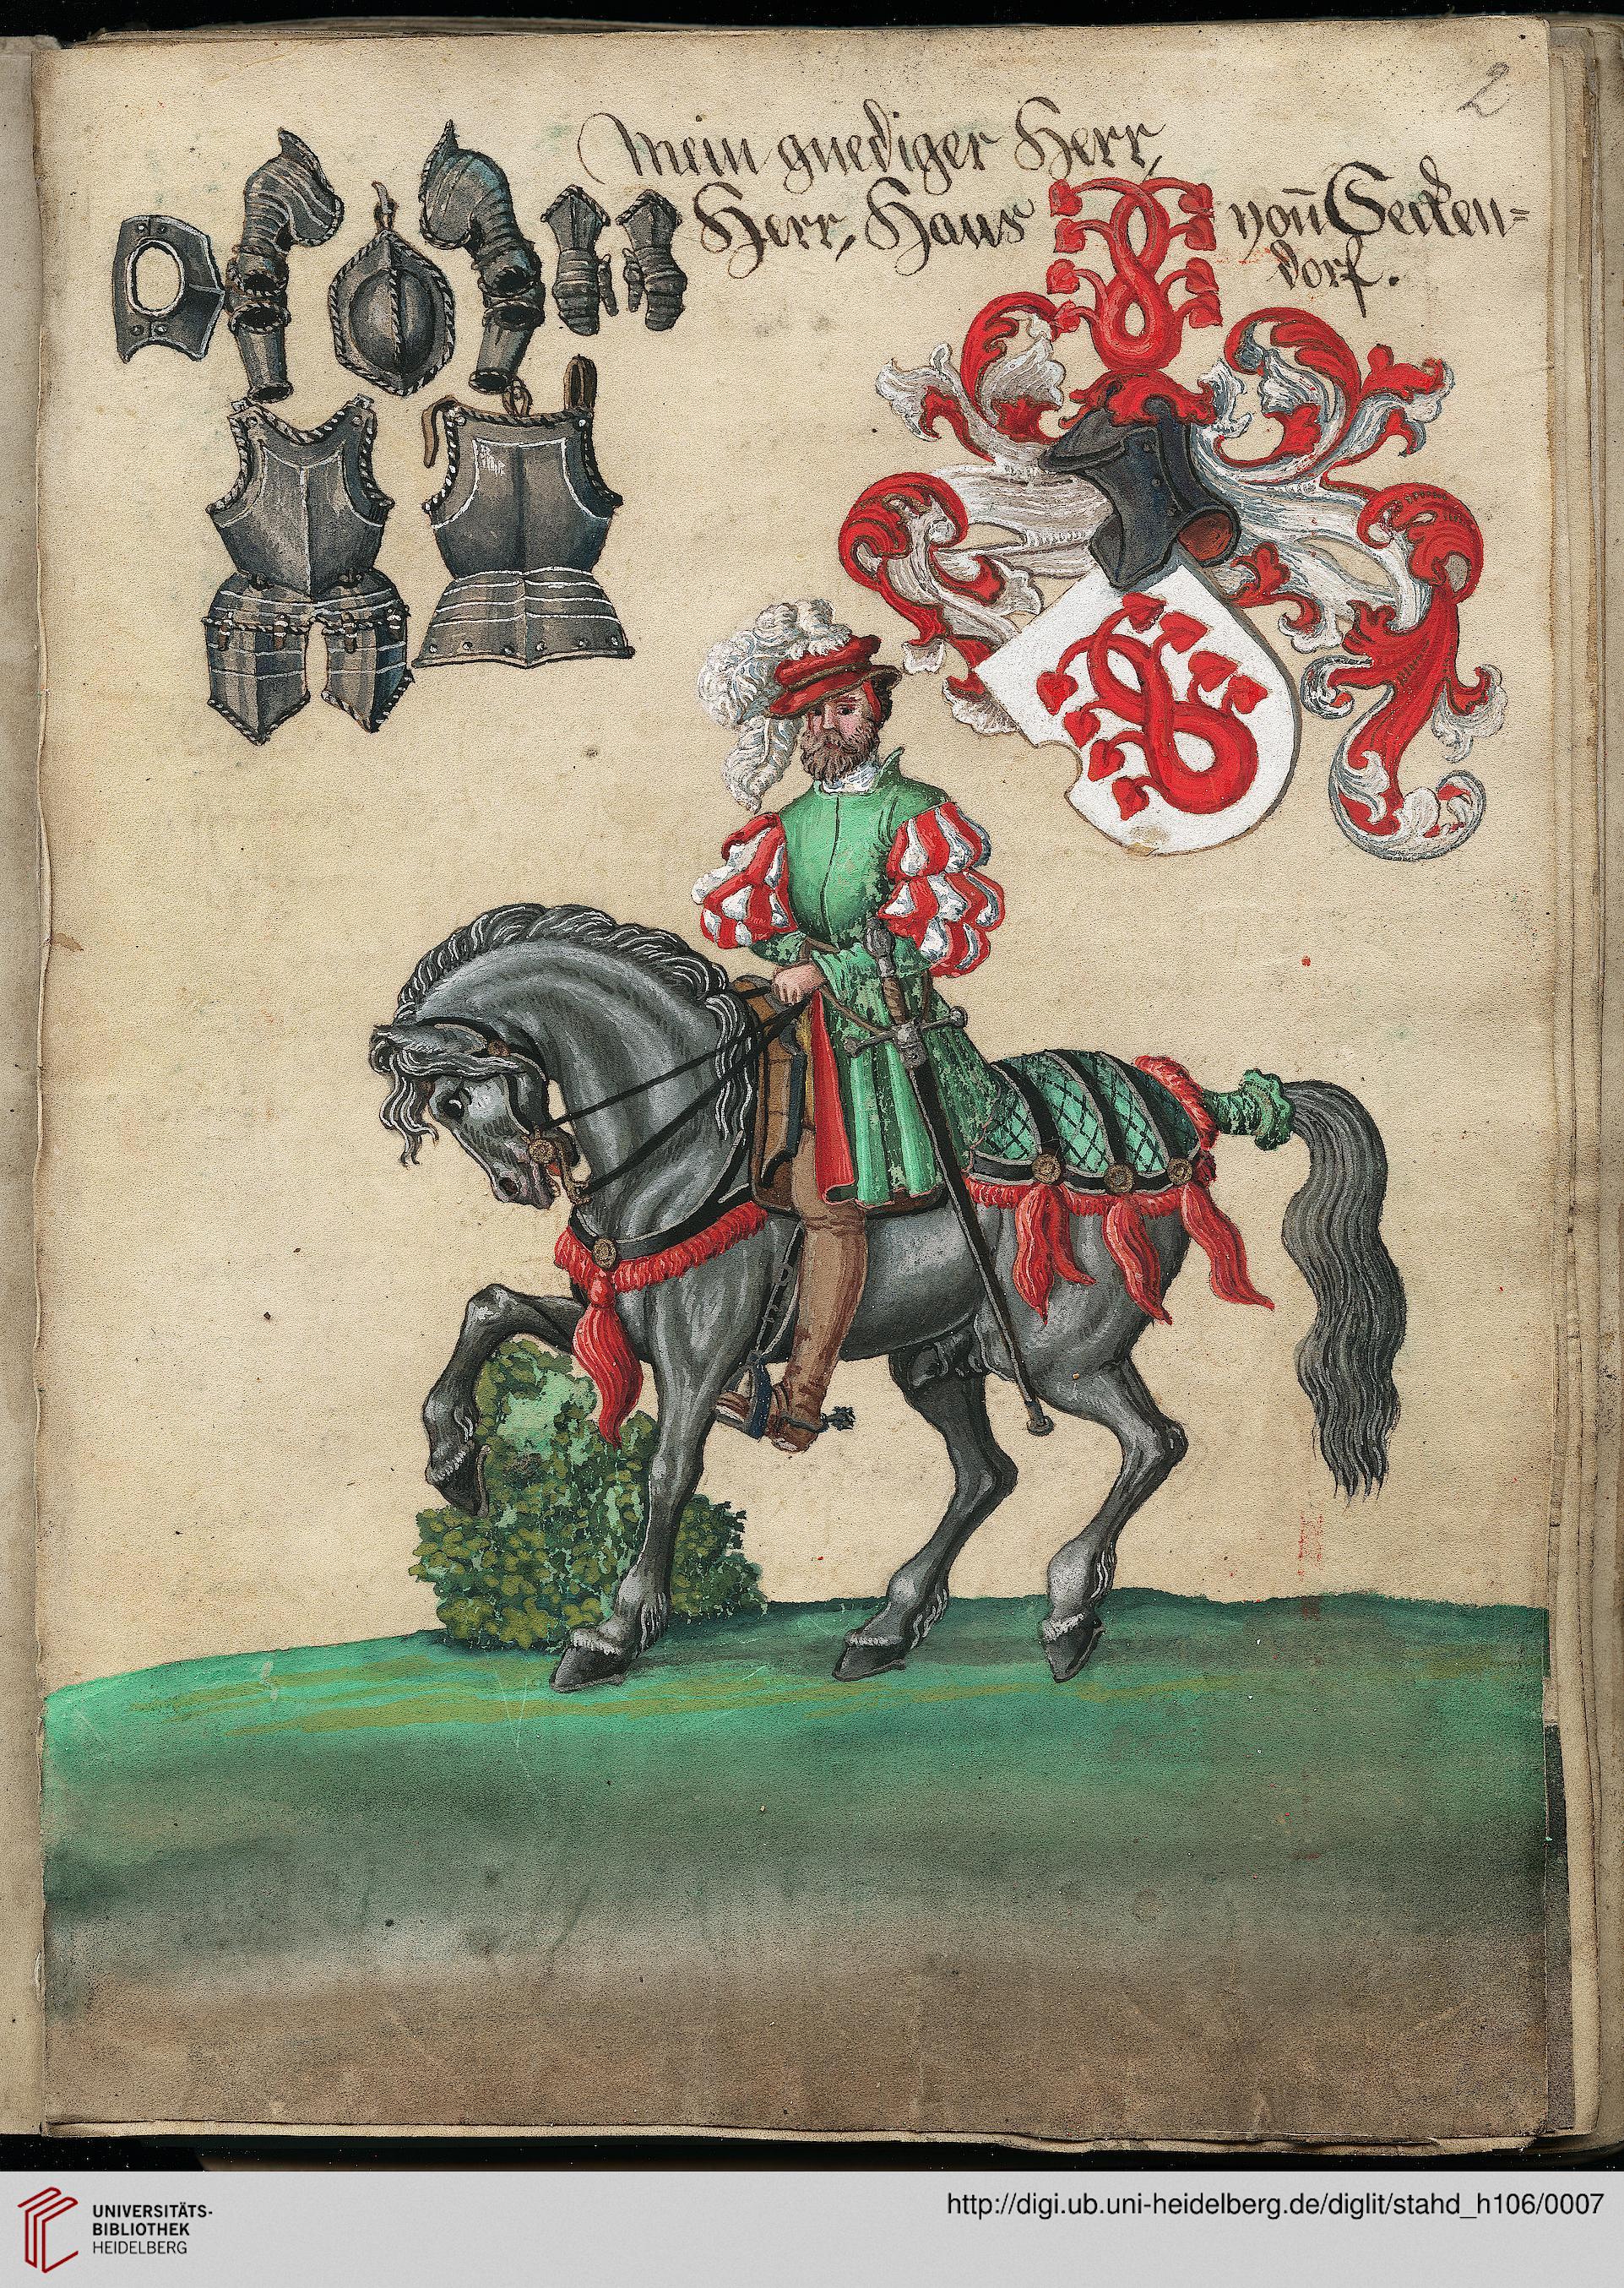 2
Mein gnediger Herr,
Herr, Hans von Secken=
dorf.
UNIVERSITÄTS-
BIBLIOTHEK
HEIDELBERG
http://digi.ub.uni-heidelberg.de/diglit/stahd_h106/0007